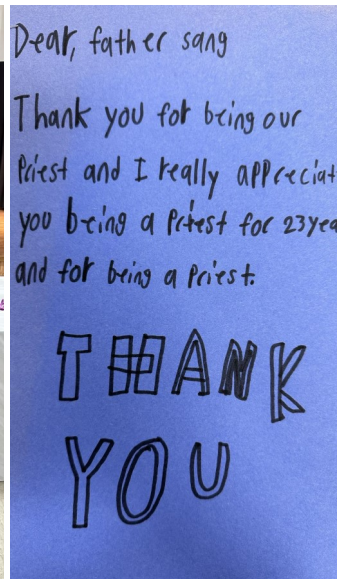 Dear, father sang
Thank you for being our
Priest and I really appreciat
you being a Priest for 23 yea
and for being a priest.
THANK
YOU